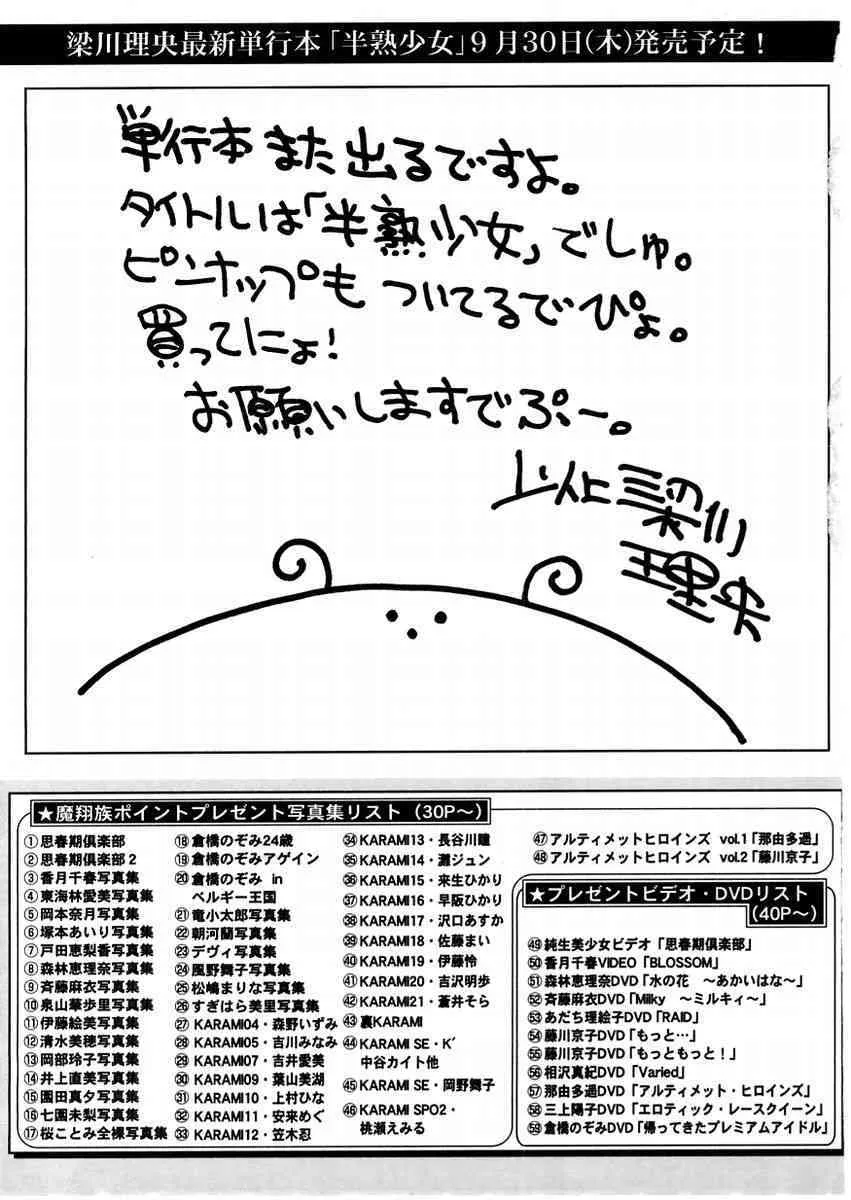 梁川理央最新単行本「半熟少女」9月30日(木)発売予定！
単行本また出るですよ。
タイトルは「半熟少女」でしゅ。
ピンナップもついてるでぴょ。
買ってにょ！
お願いしますでぷー。
以上 梁川
理央
★魔翔族ポイントプレゼント写真集リスト（30P〜）
①思春期倶楽部
②思春期倶楽部2
③香月千春写真集
④東海林愛美写真集
⑤岡本奈月写真集
⑥塚本あいり写真集
⑦戸田恵梨香写真集
⑧森林恵理奈写真集
⑨斉藤麻衣写真集
⑩泉山華歩里写真集
⑪伊藤絵美写真集
⑫清水美穂写真集
⑬岡部玲子写真集
⑭井上直美写真集
⑮園田真夕写真集
⑯七園未梨写真集
⑰桜ことみ全裸写真集
⑱倉橋のぞみ24歳
⑲倉橋のぞみアゲイン
⑳倉橋のぞみ in
ベルギー王国
㉑竜小太郎写真集
㉒朝河蘭写真集
㉓デヴィ写真集
㉔風野舞子写真集
㉕松嶋まりな写真集
㉖すぎはら美里写真集
㉗KARAMI04・森野いずみ
㉘KARAMI05・吉川みなみ
㉙KARAMI07・吉井愛美
㉚KARAMI09・葉山美湖
㉛KARAMI10・上村ひな
㉜KARAMI11・安来めぐ
㉝KARAMI12・笠木忍
㉞KARAMI13・長谷川瞳
㉟KARAMI14・灘ジュン
㊱KARAMI15・来生ひかり
㊲KARAMI16・早阪ひかり
㊳KARAMI17・沢口あすか
㊴KARAMI18・佐藤まい
㊵KARAMI19・伊藤怜
㊶KARAMI20・吉沢明歩
㊷KARAMI21・蒼井そら
㊸裏KARAMI
㊹KARAMI SE・K'
中谷カイト他
㊺KARAMI SE・岡野舞子
㊻KARAMI SPO2・
桃瀬えみる
㊼アルティメットヒロインズ vol.1「那由多遥」
㊽アルティメットヒロインズ vol.2「藤川京子」
★プレゼントビデオ・DVDリスト
（40P〜）
㊾純生美少女ビデオ「思春期倶楽部」
㊿香月千春VIDEO「BLOSSOM」
51森林恵理奈DVD「水の花　〜あかいはな〜」
52斉藤麻衣DVD「Milky　〜ミルキィ〜」
53あだち理絵子DVD「RAID」
54藤川京子DVD「もっと…」
55藤川京子DVD「もっともっと！」
56相沢真紀DVD「Varied」
57那由多遥DVD「アルティメット・ヒロインズ」
58三上陽子DVD「エロティック・レースクイーン」
59倉橋のぞみDVD「帰ってきたプレミアムアイドル」